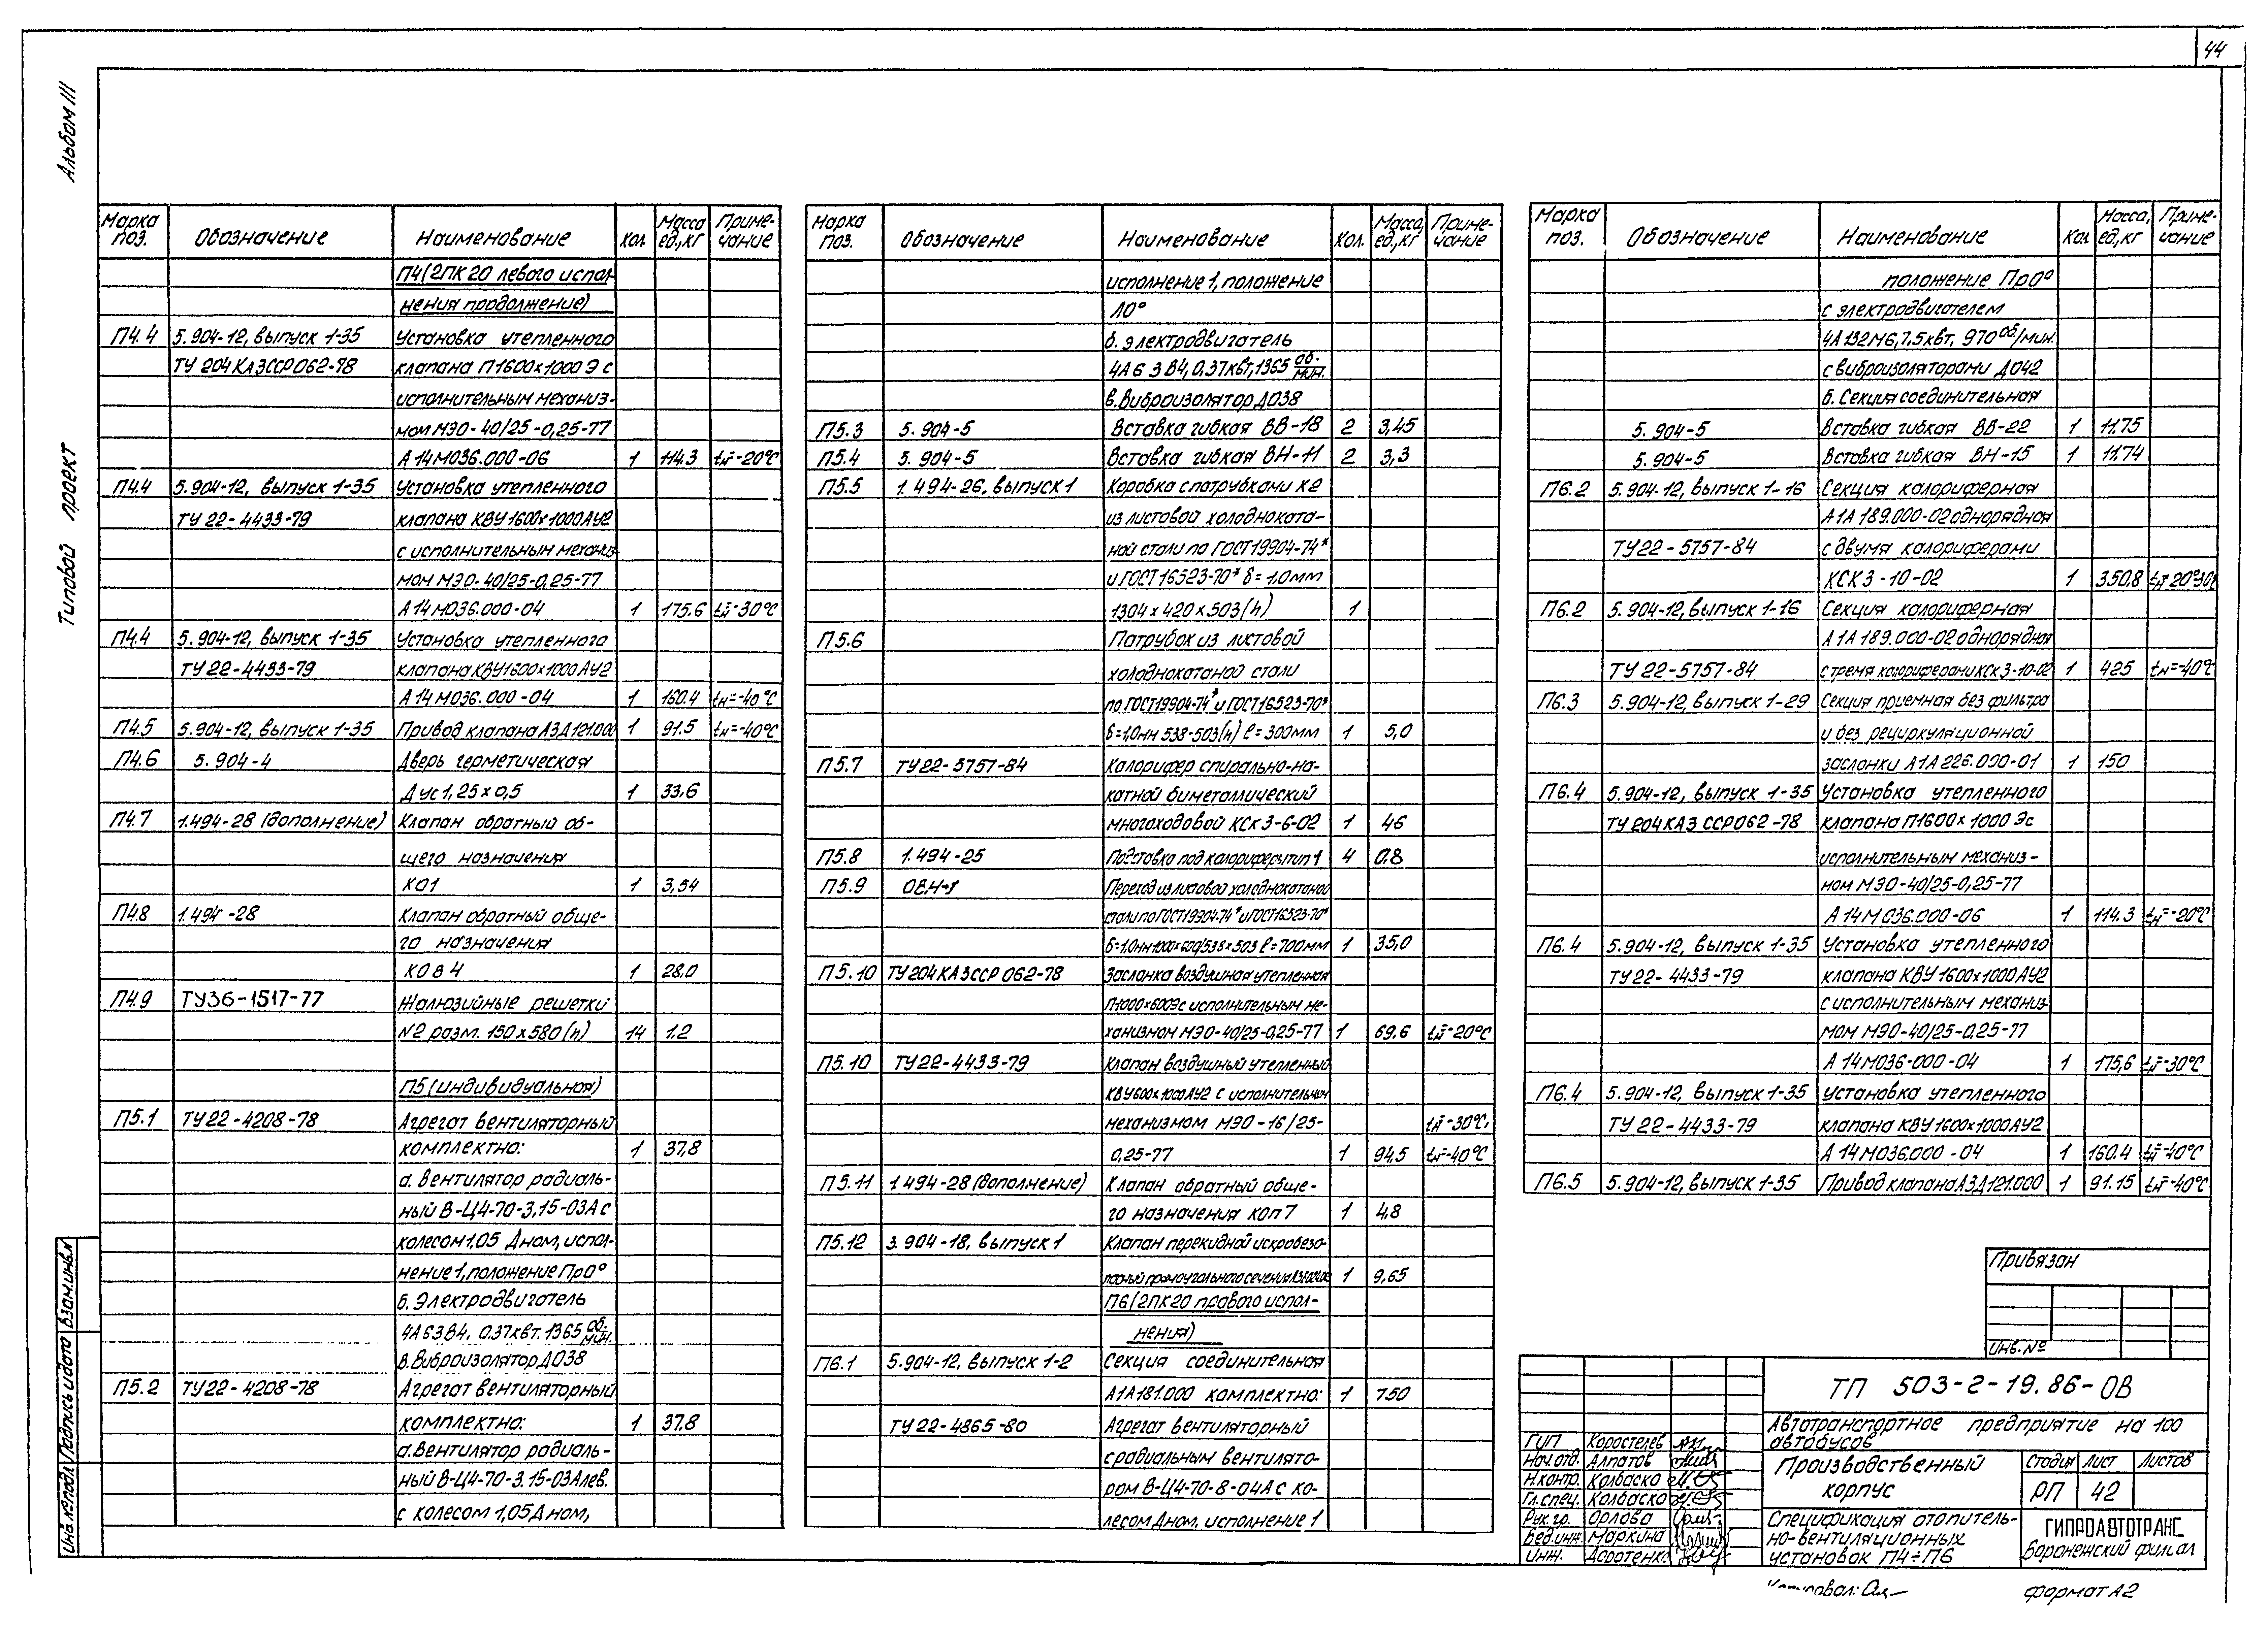 44
Альбом III
Типовой проект
Марка поз. Обозначение Наименование Кол. Масса ед., кг Примечание
П4 (2ПК20 левого испол-
нения продолжение)
П4.4 5.904-12, выпуск 1-35 Установка утепленного
ТУ 204 КАЗССР 062-78 клапана П1600х1000 Э с
исполнительным механиз-
мом МЭО-40/25-0,25-77
А14М036.000-06 1 114.3 tн=-20°С
П4.4 5.904-12, выпуск 1-35 Установка утепленного
ТУ 22-4433-79 клапана КВУ 1600х1000АУ2
с исполнительным механиз-
мом МЭО-40/25-0,25-77
А14М036.000-04 1 175.6 tн=-30°С
П4.4 5.904-12, выпуск 1-35 Установка утепленного
ТУ 22-4433-79 клапана КВУ1600х1000АУ2
А14М036.000-04 1 160.4 tн=-40°С
П4.5 5.904-12, выпуск 1-35 Привод клапана АЗД121.000 1 91.5 tн=-40°С
П4.6 5.904-4 Дверь герметическая
Дус 1,25х0,5 1 33,6
П4.7 1.494-28 (дополнение) Клапан обратный об-
щего назначения
КО1 1 3,54
П4.8 1.494-28 Клапан обратный обще-
го назначения
КОВ4 1 28,0
П4.9 ТУ36-1517-77 Жалюзийные решетки
N2 разм. 150х580(h) 14 1,2
П5 (индивидуальная)
П5.1 ТУ22-4208-78 Агрегат вентиляторный
комплектно: 1 37,8
а. вентилятор радиаль-
ный В-Ц4-70-3,15-03А с
колесом 1,05 Дном, испол-
нение 1, положение Пр0°
б. Электродвигатель
4А63В4, 0.37квт. 1365 об./мин.
в. Виброизолятор Д038
П5.2 ТУ22-4208-78 Агрегат вентиляторный
комплектно: 1 37.8
а. вентилятор радиаль-
ный В-Ц4-70-3.15-03А лев.
с колесом 1,05 Дном,
Марка поз. Обозначение Наименование Кол. Масса, ед., кг Приме-чание
исполнение 1, положение
Л0°
б. электродвигатель
4А63В4, 0,37квт, 1365 об./мин.
в. Виброизолятор Д038
П5.3 5.904-5 Вставка гибкая ВВ-18 2 3,45
П5.4 5.904-5 Вставка гибкая ВН-11 2 3,3
П5.5 1.494-26, выпуск 1 Коробка с патрубками К2
из листовой холодноката-
ной стали по ГОСТ 19904-74*
и ГОСТ 16523-70* δ=1,0мм
1304х420х503(h) 1
П5.6 Патрубок из листовой
холоднокатаной стали
по ГОСТ19904-74* и ГОСТ16523-70*
δ=1,0мм 538-503(h) ℓ=300мм 1 5,0
П5.7 ТУ22-5757-84 Калорифер спирально-на-
катной биметаллический
многоходовой КСк3-6-02 1 46
П5.8 1.494-25 Подставка под калориферы тип 1 4 0.8
П5.9 ОВ.Н-1 Переход из листовой холоднокатаной
стали по ГОСТ19904-74* и ГОСТ16523-70*
δ=1,0мм 1000х600/538х503 ℓ=700мм 1 35,0
П5.10 ТУ204КАЗССР 062-78 Заслонка воздушная утепленная
П1000х600Э с исполнительным ме-
ханизмом МЭО-40/25-0,25-77 1 69.6 tн=-20°С
П5.10 ТУ22-4433-79 Клапан воздушный утепленный
КВУ600х1000АУ2 с исполнительным
механизмом МЭО-16/25- tн=-30°С,
0,25-77 1 94,5 tн=-40°С
П5.11 1.494-28 (дополнение) Клапан обратный обще-
го назначения коп 7 1 4,8
П5.12 3.904-18, выпуск 1 Клапан перекидной искробезо-
пасный прямоугольного сечения 1 9,65
П6 (2ПК20 правого испол-
нения)
П6.1 5.904-12, выпуск 1-2 Секция соединительная
А1А181.000 комплектно: 1 750
ТУ 22-4865-80 Агрегат вентиляторный
с радиальным вентилято-
ром В-Ц4-70-8-04А с ко-
лесом Дном, исполнение 1
Марка поз. Обозначение Наименование Кол Масса, ед., кг Приме-чание
положение Пр0°
с электродвигателем
4А132М6, 7,5квт, 970 об/мин.
с виброизоляторами Д042
б. Секция соединительная
5.904-5 Вставка гибкая ВВ-22 1 11.75
5.904-5 Вставка гибкая ВН-15 1 11.74
П6.2 5.904-12, выпуск 1-16 Секция калориферная
А1А189.000-02 однорядная
ТУ22-5757-84 с двумя калориферами
КСК3-10-02 1 350.8 tн=-20°-30°
П6.2 5.904-12, выпуск 1-16 Секция калориферная
А1А189.000-02 однорядная
ТУ 22-5757-84 с тремя калориферами КСК3-10-02 1 425 tн=-40°С
П6.3 5.904-12, выпуск 1-29 Секция приемная без фильтра
и без рециркуляционной
заслонки А1А226.000-01 1 150
П6.4 5.904-12, выпуск 1-35 Установка утепленного
ТУ204КАЗ ССР 062-78 клапана П1600х1000 Эс
исполнительным механиз-
мом МЭО-40/25-0,25-77
А14М036.000-06 1 114.3 tн=-20°С
П6.4 5.904-12, выпуск 1-35 Установка утепленного
ТУ22-4433-79 клапана КВУ 1600х1000АУ2
с исполнительным механиз-
мом МЭО-40/25-0,25-77
А14М036-000-04 1 175,6 tн=-30°С
П6.4 5.904-12, выпуск 1-35 Установка утепленного
ТУ 22-4433-79 клапана КВУ1600х1000АУ2
А14М036.000-04 1 160.4 tн=-40°С
П6.5 5.904-12, выпуск 1-35 Привод клапана АЗД121.000 1 91.15 tн=-40°С
Привязан
Инв. №
ТП 503-2-19.86-ОВ
Автотранспортное предприятие на 100
автобусов
Производственный
корпус
Стадия Лист Листов
РП 42
Спецификация отопитель-
но-вентиляционных
установок П4÷П6
ГИПРОАВТОТРАНС
Воронежский филиал
ГИП Коростелев
Нач.отд. Алпатов
Н.контр. Колбаско
Гл.спец. Колбаско
Рук.гр. Орлова
Вед.инж. Маркина
Инж. Доротенко
Инв.№подл. Подпись и дата Взам.инв.№
Копировал:
Формат А2